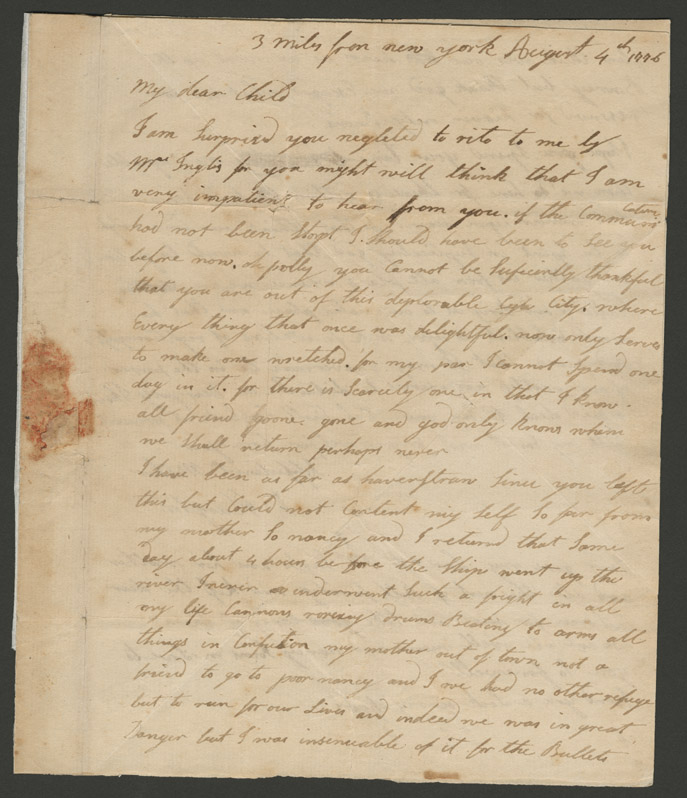 3 miles from new york August 4th 1776
My dear Child
I am Surprizd you negleted to rite to me by
Mrs Inglis for you might will think that I am
very impatient to hear from you. if the Communi cation
had not been Stopt I Should have been to See you
before now. oh polly you Cannot be Suficiently thankful
that you are out of this deplorable City. where
Every thing that once was delightful. now only Serves
to make one wretched. for my par I cannot Spend one
day in it. for there is Scarcely one in that I know.
all friend gone and god only knows when
we Shall return perhaps never
I have been as far as haverstraw Since you left
this but Could not Content my Self So far from
my mother So nancy and I returnd that Same
day about 4 hours be fore the Ships went up the
river I never underwent Such a fright in all
my life Cannons roreing drums Beating to arms all
things in Confution my mother out of town not a
friend to go to poor nancy and I we had no other refuge
but to run for our Lives and indeed we was in great
Danger but I was insencuable of it for the Bullets